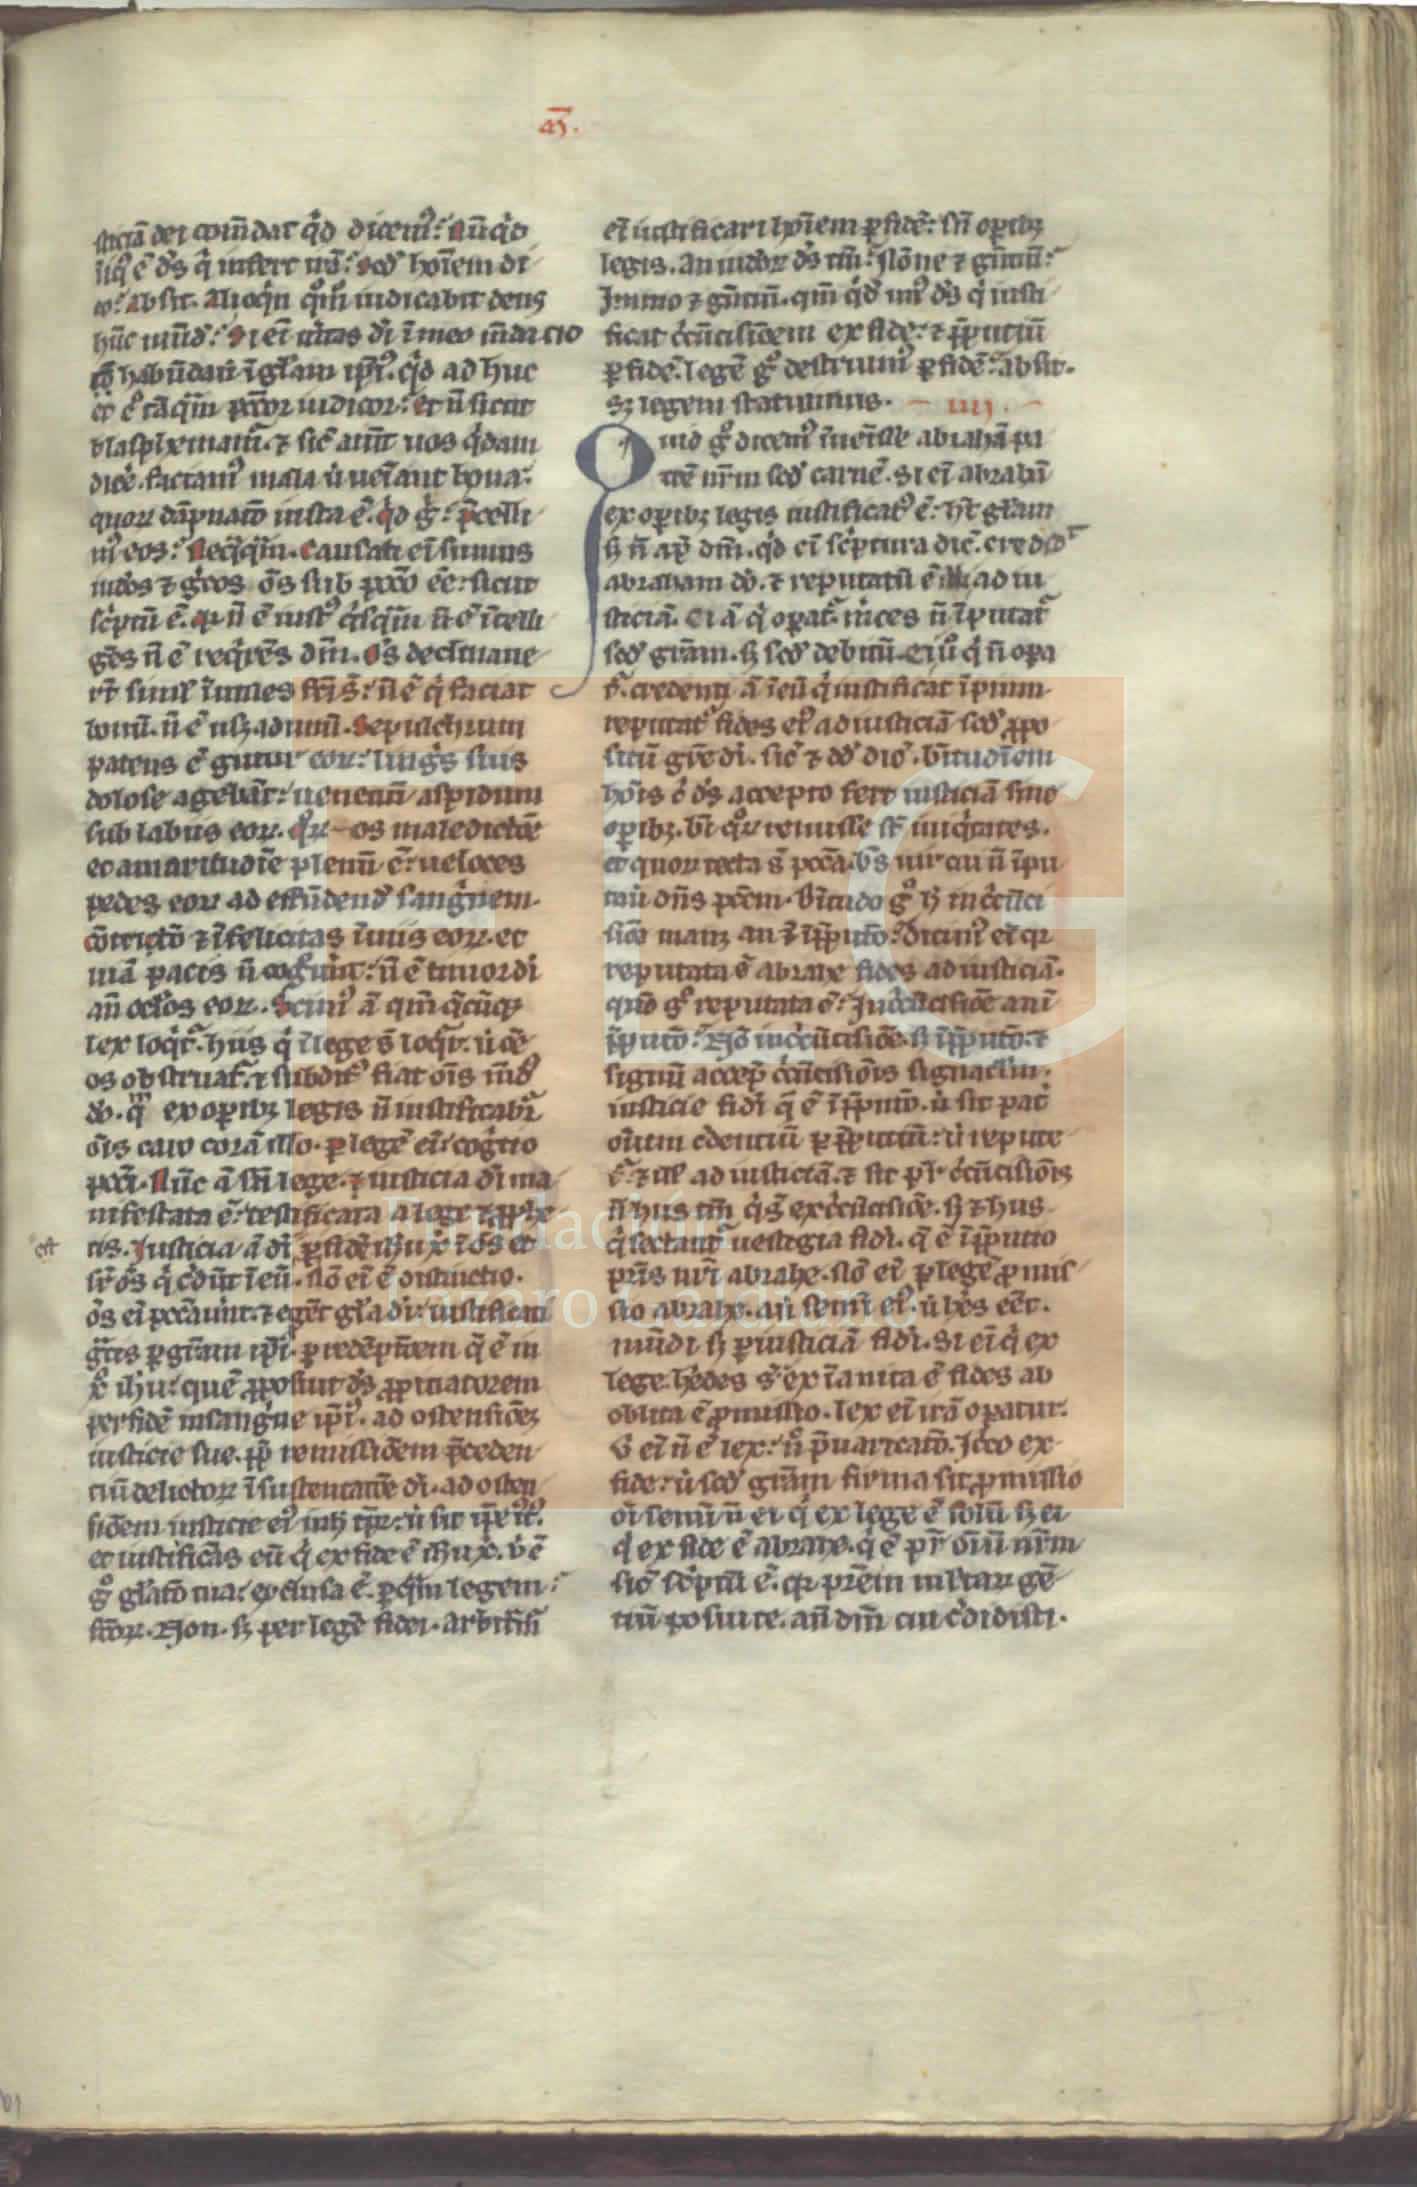 sticiā dei cōmēdat q̇d dicemꝰ? Nūq̇d
iīqꝰ ē ds̄ q̇ infert irā? scd̄ hoīem di
co. absit. Alioq̇n qm̄ iudicabit deus
hūc mūdū? Si eī ūitas di ī meo mēdacio
habūdauit ī glām ip̄iꝰ. q̇d adhuc
et ē tāq̄m pcc̄or iudicor? et n̄ sicut
blasphemamꝰ. ⁊ sic̄ aiūt nos q̇dam
dicē. faciamꝰ mala ut ueīant bona:
quoꝝ dāpnatō iusta ē. q̇d gͦ? p̄celli
mꝰ eos? Neq̄q̄m. Causati eī sumus
iudeos ⁊ grecos oēs sub pccō ēe: sicut
sc̄ptū ē. qꝛ n̄ ē iustꝰ q̇sq̄m n̄ ē ītelli
gēs n̄ ē req̇rēs dm̄. Oēs declinaue
rt̄ simul īutiles fc̄i s̄: n̄ ē q̇ faciat
bonū. n̄ ē usqꝫ ad unū. Sepulchrum
patens ē guttur eoꝝ: linguis suis
dolose agebāt: uenenū aspidum
sub labiis eoꝝ. qꝝ os maledictiōe
et amaritudīe plenū ē: ueloces
pedes eoꝝ ad effūdendū sanguinem.
cōtritō ⁊ īfelicitas ī uiis eoꝝ. et
uiā pacis n̄ cognouerūt: n̄ ē timor di
an̄ oclōs eoꝝ. Scimꝰ ā qm̄ q̄cūqꝫ
lex loq̇tꝛ. hiis q̇ ī lege s̄ loq̇tꝛ. ut oē
os obstruatꝛ. ⁊ subditꝰ fiat oīs mūdꝰ
dō. qꝛ ex opibꝫ legis n̄ iustificabitꝛ
oīs caro corā illo. ꝑ legē eī cognitio
pccī. Nūc ā sn̄ lege. ⁊ iusticia di ma
nifestata ē: testificata a lege ⁊ ꝓphe
tis. Iusticia ā di ꝑ fidē ihū xp̄i ī oēs et
sr̄ oēs q̇ c̄dūt ī eū. nō eī ē distinctio.
oēs eī pccauēt. ⁊ egēt glā di. iustificati
gr̄tis ꝑ gr̄am ip̄iꝰ. ꝑ redēptōem q̄ ē in
xp̄o ihū: quē ꝓposuit ds̄ ꝓpitiatorem
per fidē in sanguine ip̄iꝰ. ad ostensiōeꝫ
iusticie sue. ꝓp̄ remissiōem p̄ceden
tiū delictoꝝ ī sustentatōe di. ad osten
siōem iusticie eiꝰ in hͦ tp̄r: ut sit ip̄e iꝰtꝰ.
et iustificās eū q̇ ex fide ē ihū xp̄i. ubi ē
gͦ gliatō tua? exclusa ē. ꝑ q̄m legem?
fc̄oꝝ. Non. sꝫ per legē fidei. arbitm̄
eī iustificari hoīem ꝑ fidē: sn̄ opibꝫ
legis. an iudeoꝝ ds̄ tm̄? Nōne ⁊ gn̄tiū?
Immo ⁊ gn̄tiū. qm̄ q̇dē unꝰ ds̄ q̇ iusti
ficat c̄cūcisiōem ex fide: ⁊ p̄putiū
ꝑ fidē. legē gͦ destruimꝰ ꝑ fidē? absit.
sꝫ legem statuimus. iiij.
Quid gͦ dicemꝰ īuenisse abrahā pa
trē nr̄m scd̄ carnē. Si eī abrahā
ex opibꝫ legis iustificatꝰ ē: hꝫ glām
sꝫ n̄ ap̄ dm̄. q̇d eī sc̄ptura dic̄. credidit
abraham dō. ⁊ reputatū ē illi ad iu
sticiā. Ei ā q̇ opatꝛ. m̄ces n̄ īputatꝛ
scd̄ gr̄am. sꝫ scd̄ debitū. Ei ūo q̇ n̄ opa
tꝛ. credenti ā ī eū q̇ iustificat īpium
reputatꝛ fides eiꝰ ad iusticiā scd̄ ꝓpo
sitū gr̄e di. sic̄ ⁊ dd̄ dic̄. b̄titudīem
hoīs c̄ ds̄ accepto fert iusticiā sine
opibꝫ. bt̄i qꝝ remisse st̄ iniq̇tates.
et quoꝝ tecta s̄ pccā. bt̄s uir cui n̄ īpu
tauit dn̄s pccm̄. b̄titudo gͦ hͦ in c̄cūci
siōe manꝫ an ⁊ ī p̄putō? Dicimꝰ eī qꝛ
reputata ē abrahe fides ad iusticiā.
quōo gͦ reputata ē? In c̄cūcisiōe an ī
p̄putō? Nō in c̄cūcisiōe. sꝫ ī p̄putō. ⁊
signū accep̄ c̄cūcisiōis signaclm̄.
iusticie fidi q̄ ē ī p̄putō. ut sit pat̄
oīum c̄dentiū ꝑ p̄putiū: ut repute
tꝛ ⁊ ill̄ ad iusticiā. ⁊ sit pr̄ c̄cūcisiōis
n̄ hiis tm̄ q̇ s̄ ex c̄cūcisiōe. sꝫ ⁊ hiis
q̇ sectantꝛ uestigia fidi. q̄ ē ī p̄putio
pr̄is nr̄i abrahe. Nō eī ꝑ legē ꝓmis
sio abrahe. aut semī eiꝰ. ut hēs eēt.
mūdi sꝫ ꝑ iusticiā fidi. Si eī q̇ ex
lege hēdes s̄ exīanita ē fides ab
olita ē ꝓmissio. lex eī irā opatur.
Ubi eī n̄ ē lex: n̄ p̄uaricatō. Idco ex
fide: ut scd̄ gr̄am firma sit ꝓmissio
oī semī n̄ ei q̇ ex lege ē solū sꝫ ei
q̇ ex fide ē abrahe. q̇ ē pr̄ oīū nr̄m
sic̄ sc̄ptū ē. qꝛ pr̄em multaꝝ gē
tiū posui te. an̄ dm̄ cui c̄didisti.
Fundación
Lázaro Galdiano